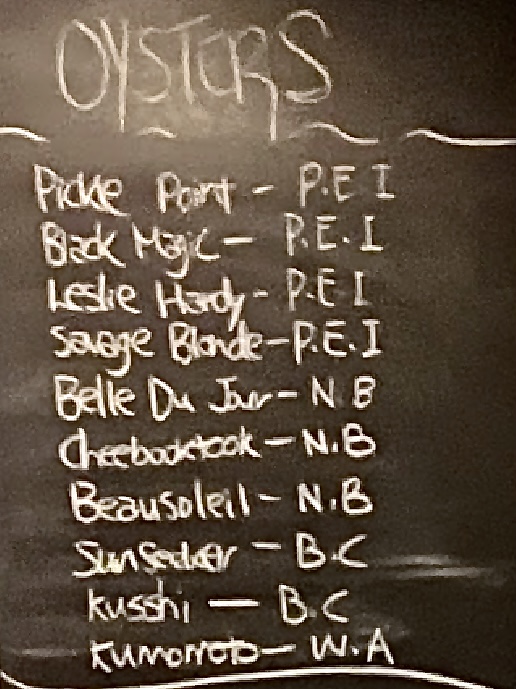 OYSTERS
Pickle Point - P.E I
Black Magic - P.E. I
Leslie Hardy - P.E I
Savage Blonde - P.E. I
Belle Du Jour - N B
Cheebooktook - N.B
Beausoleil - N.B
Sunseeker - B.C
Kusshi - B.C
Kumomoto - W.A